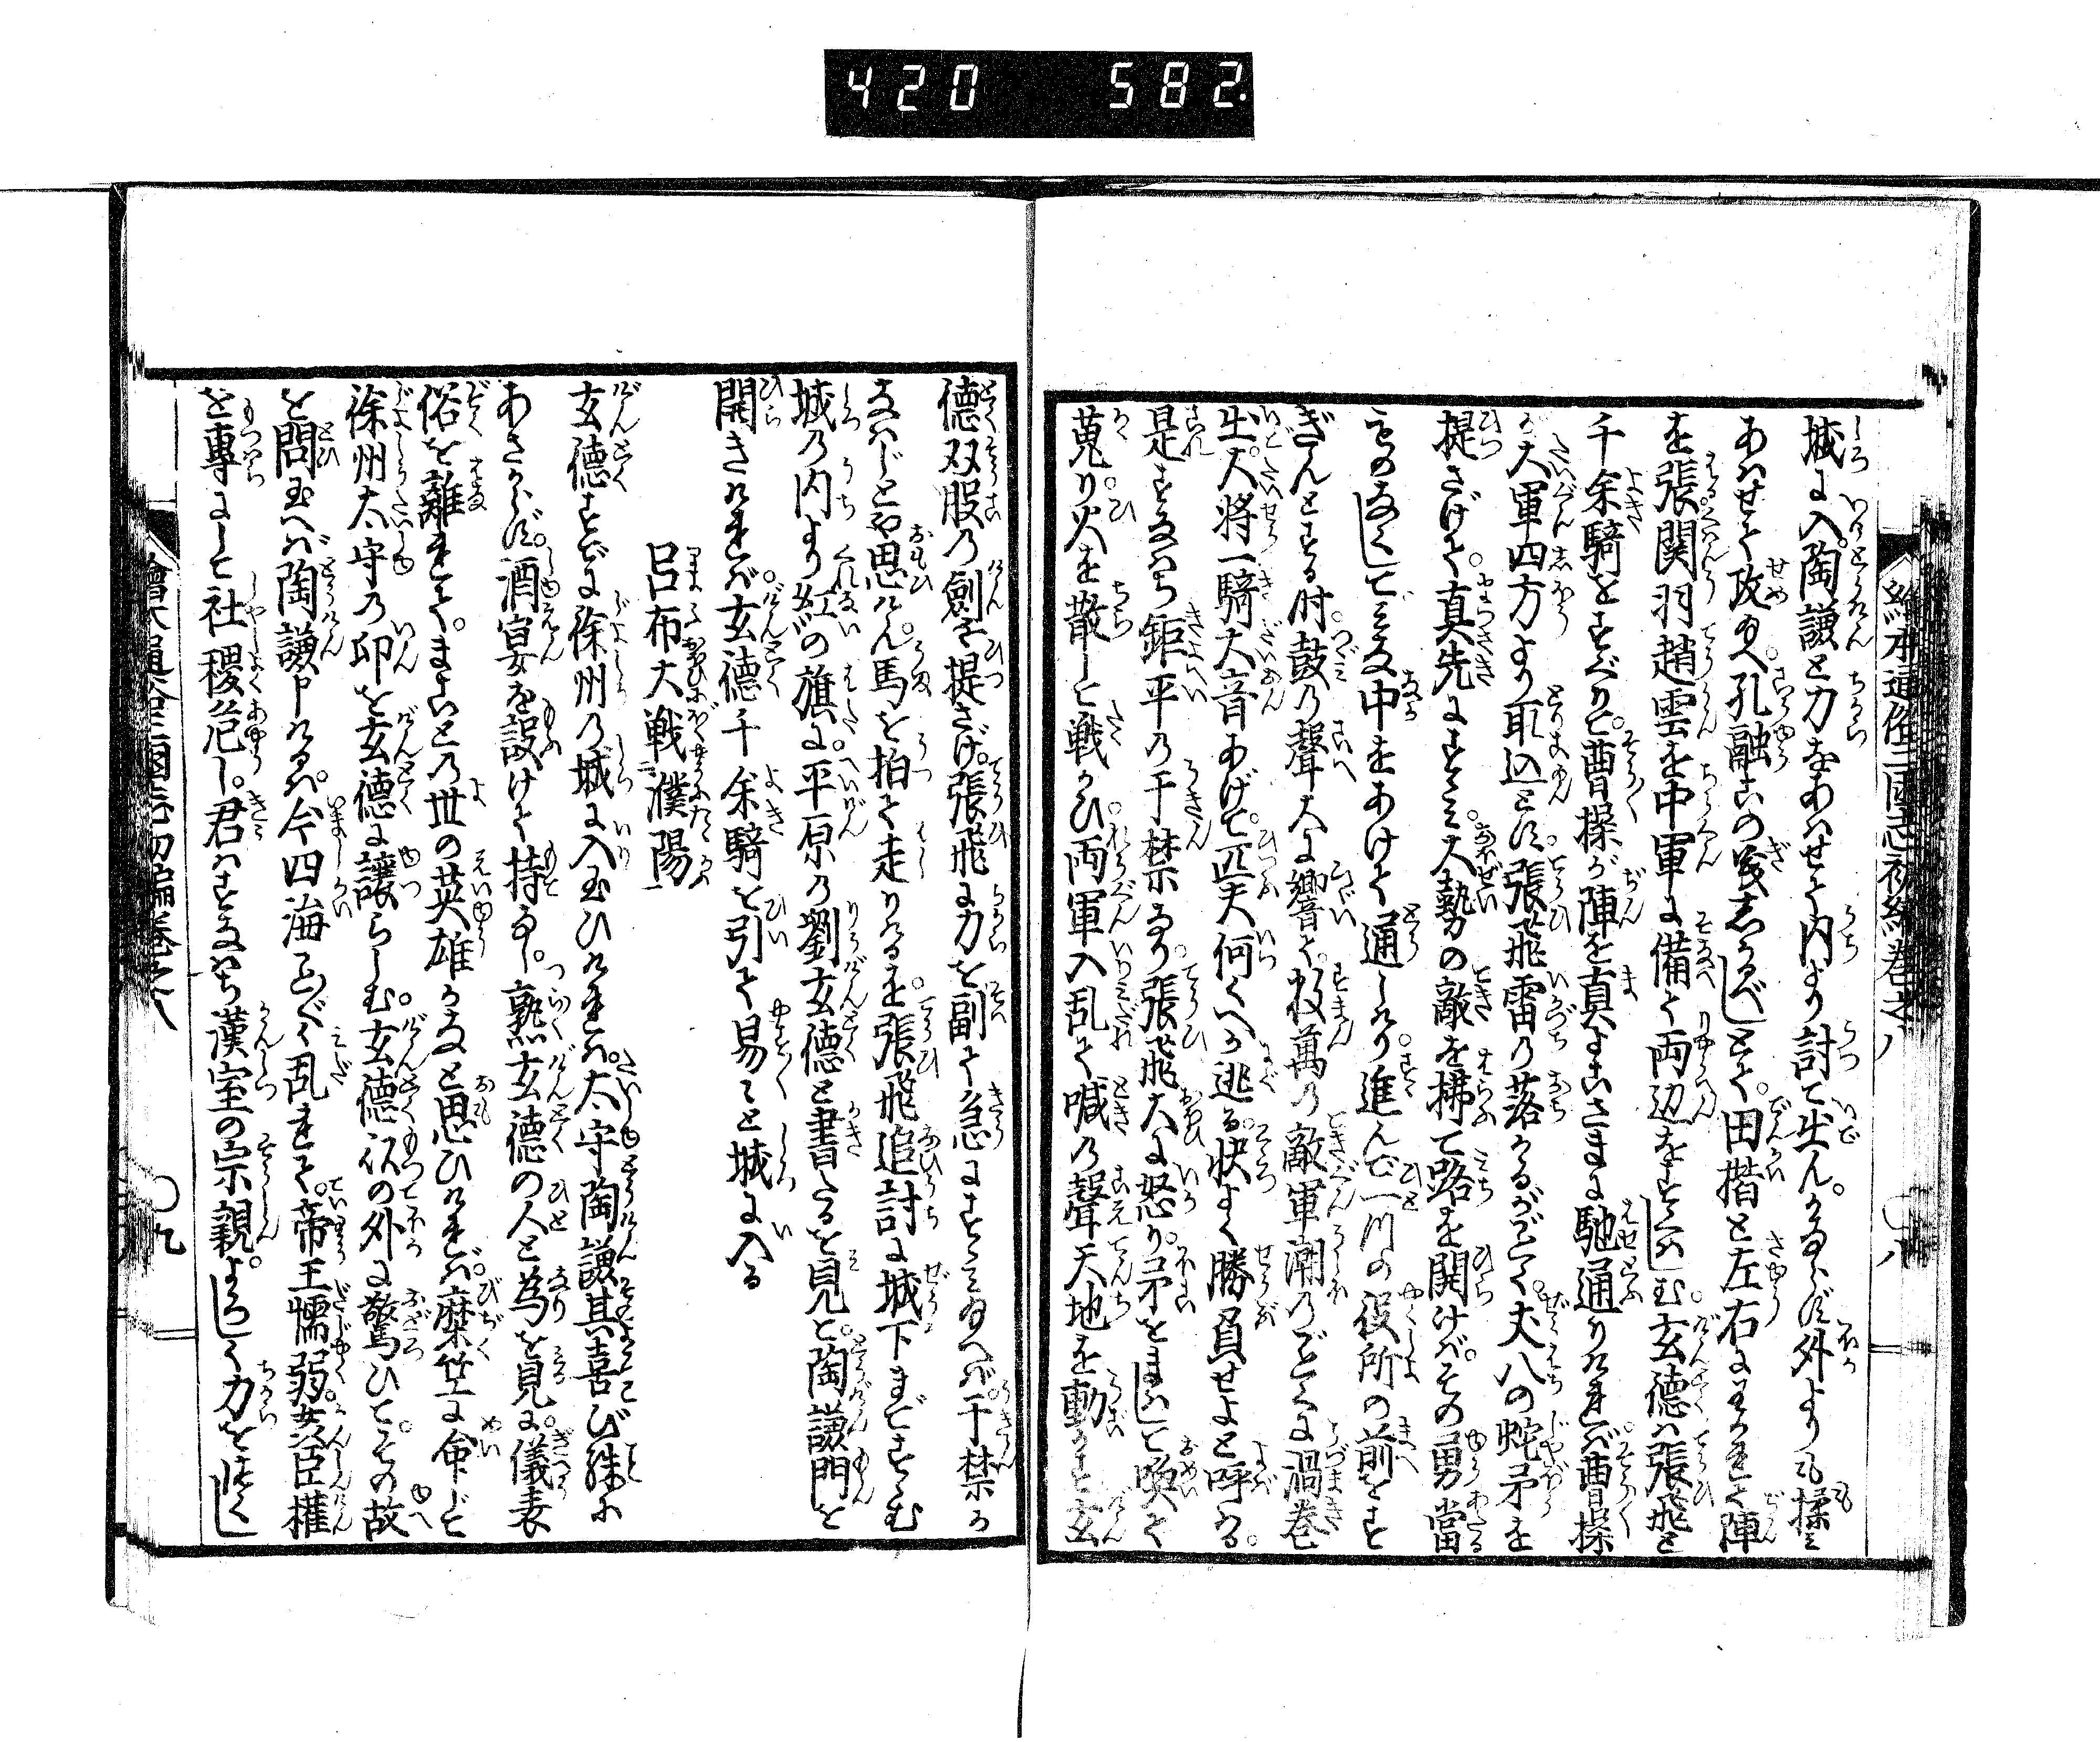 420 582.
繪本通俗三國志初編巻之八
八
城に入陶謙と力をあはせて内より討て出ん。かならず外よりも揉み
あはせて攻給へ。孔融この義しかるべしとて。田揩と左右にわかれて陣
を張関羽趙雲を中軍に備て両辺をすくはしむ。玄徳は張飛と
千余騎をすぐりて。曹操が陣を真よこさまに馳通りければ曹操
が大軍四方より取込こ。張飛雷の落かるがごとく。丈八の蛇矛を
提さげて。真先にすゝみ。大勢の敵を拂て路を開けば。その勇當
ものなくしてみな中をあけて通しけり。進んで一川の役所の前をす
ぎんとする时。鼓の聲大に響て。数萬の敵軍潮のごとくに渦巻
出。大将一騎大音あげて。匹夫何くへか逃る。快よく勝負せよと呼はる。
是すなはち鉅平の于禁なり。張飛大に怒り。矛をまはして喚て
蒐り。火を散して戦かひ。両軍入乱て喊の聲天地を動かす玄
徳双股の劔を提さげ。張飛に力を副て急にすゝみ給へば。于禁か
なはじとや思けん。馬を拍て走りけるを。張飛追討に城下まですゝむ
城の内より紅の旗に。平原の劉玄徳と書たるを見て。陶謙門を
開きければ。玄徳千余騎を引て易々と城に入る
呂布大戦濮陽
玄徳すでに徐州の城に入玉ひければ。太守陶謙其喜び殊に
あさからず。酒宴を設けて持なし。熟玄徳の人と為を見に。儀表
俗を離れて。まことの世の英雄かなと思ひければ。糜竺に命じて
徐州太守の印を玄徳に讓らしむ。玄徳以の外に驚ひて。その故
を問玉へば陶謙申けるは。今四海ことごとく乱れて。帝王懦弱。姦臣權
を專にして社稷危し。君はすなはち漢室の宗親。よろしく力を尽くし
繪本通俗三國志初編巻之八
九